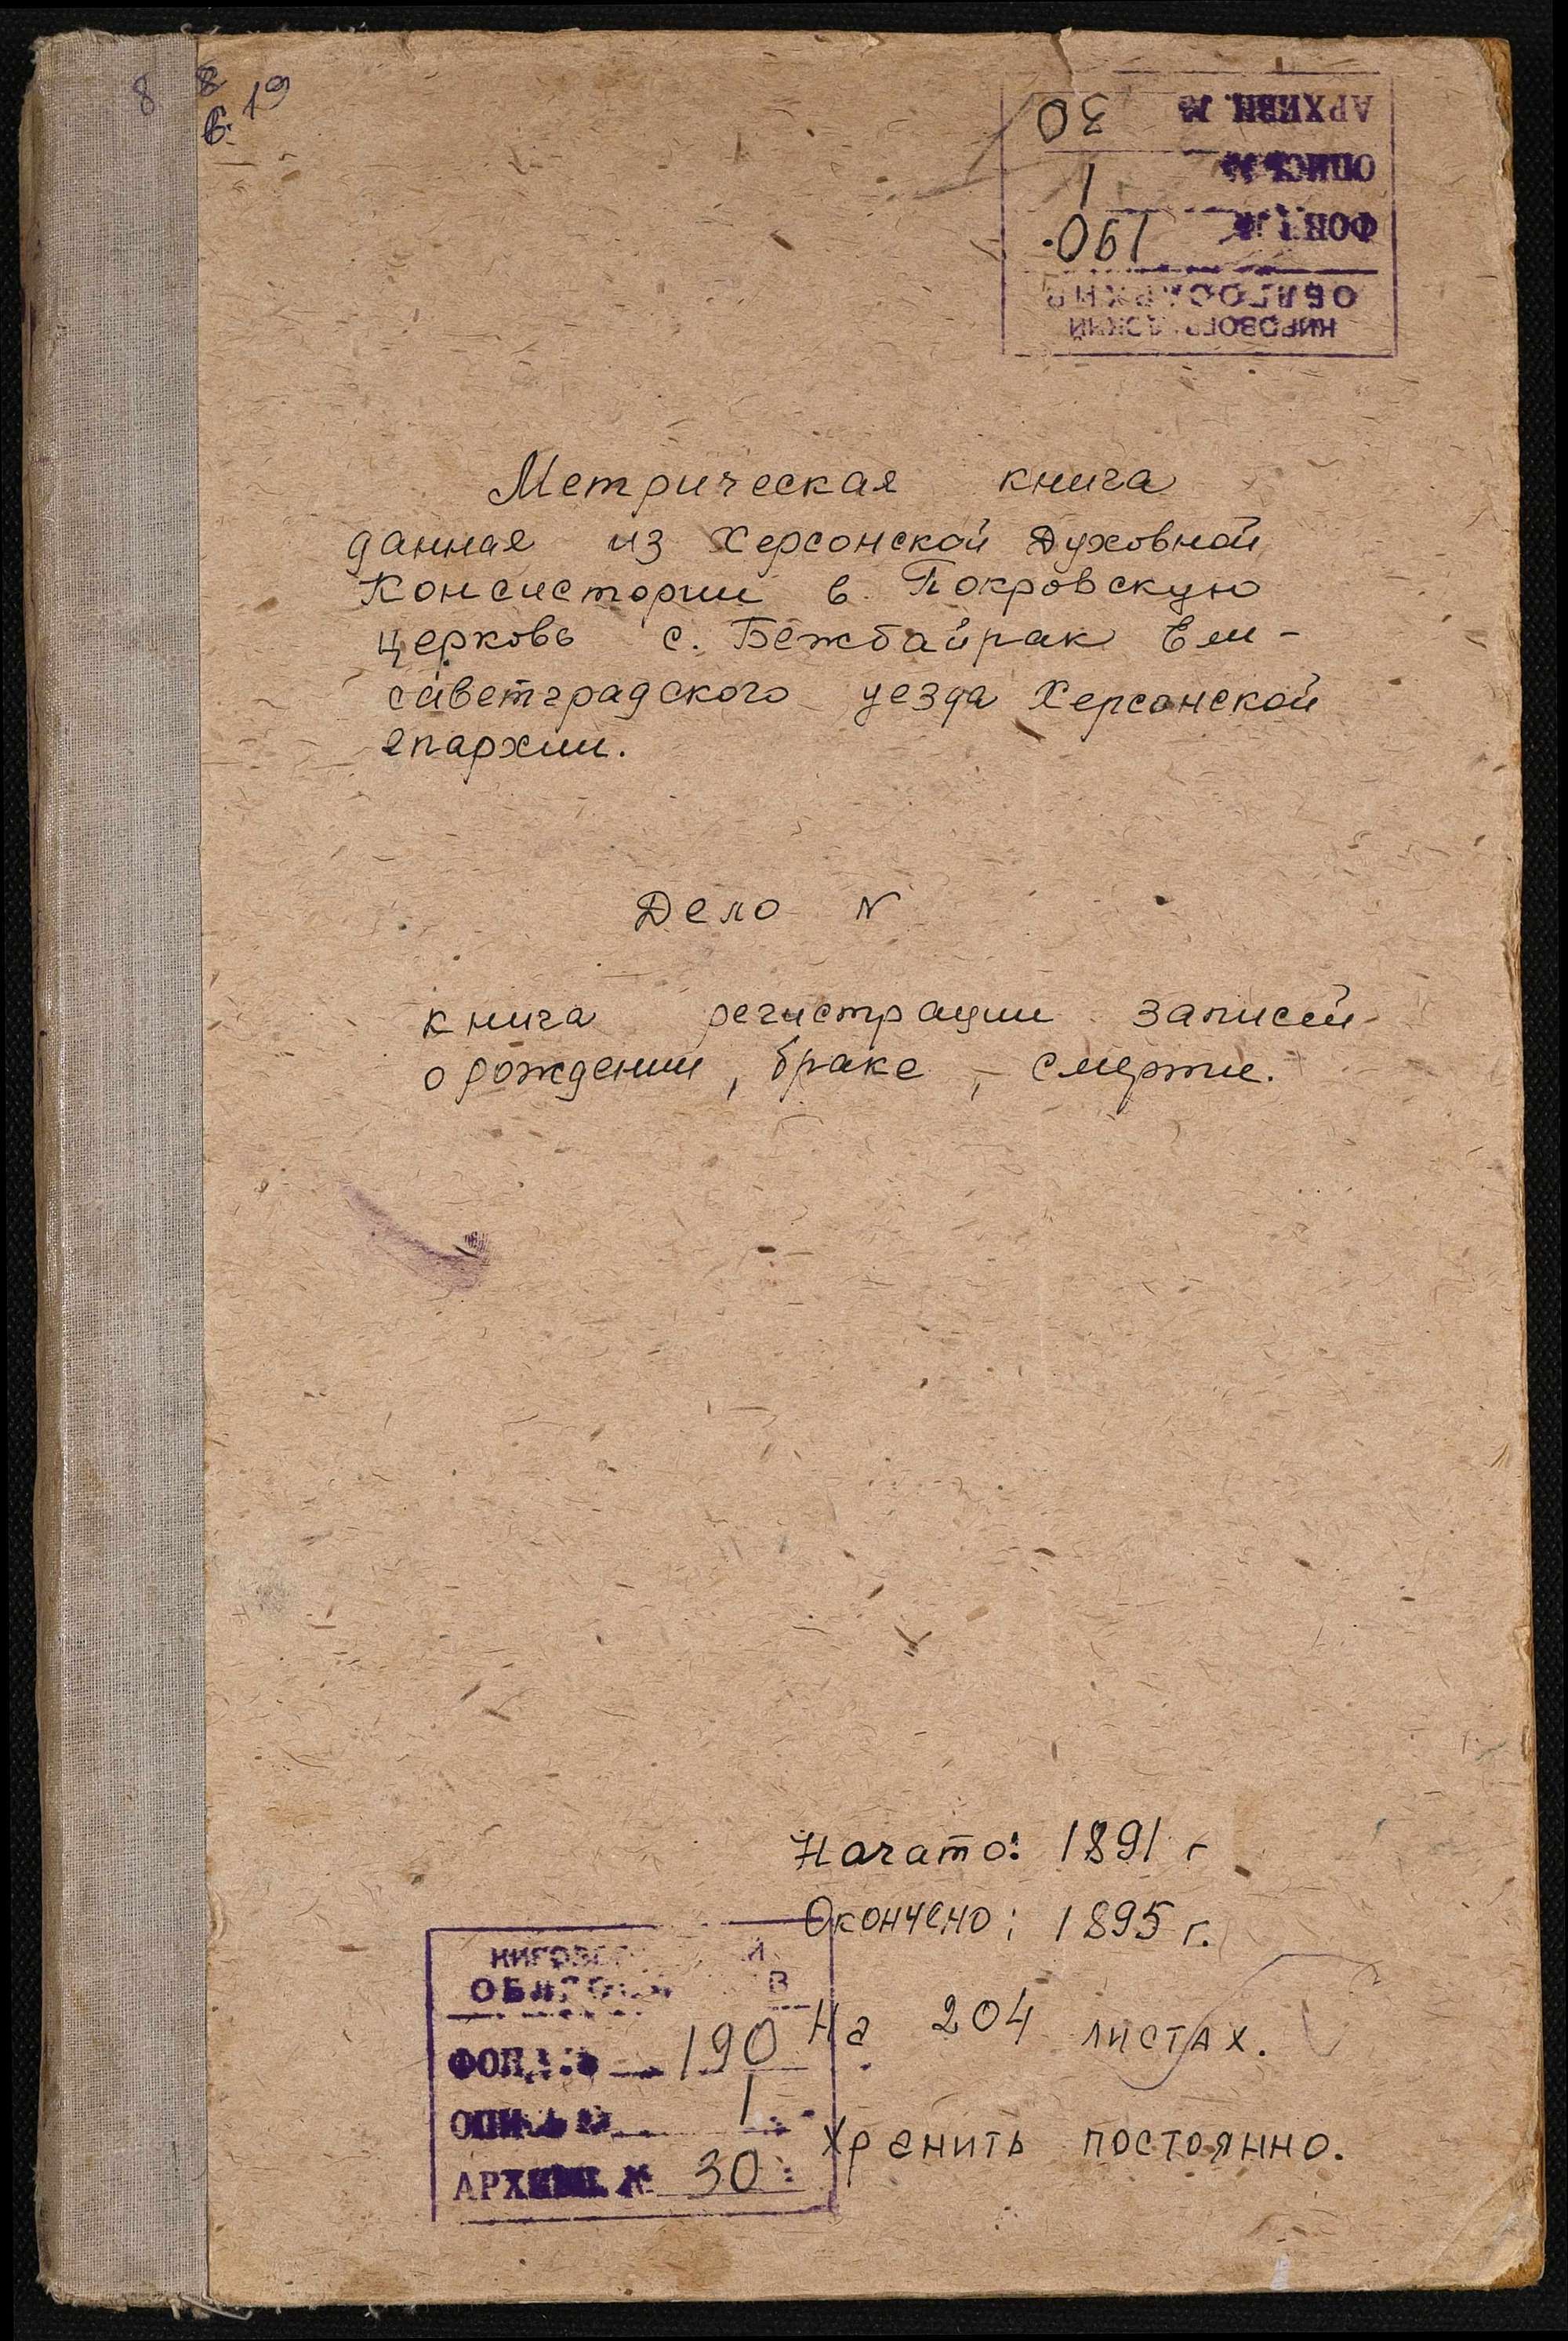 8 8 19
АРХИВН. № 30
ОПИСЬ № 1
ФОНД № 190.
КИРОВОГРАДСКИЙ
ОБЛГОСАРХИВ
Метрическая книга
данная из Херсонской Духовной
Консистории в Покровскую
церковь с. Бежбайрак Ели-
саветградского уезда Херсонской
епархии.
Дело N
книга регистрации записей
о рождении, браке, смерти.
Начато: 1891 г
Окончено: 1895 г.
На 204 листах.
Хранить постоянно.
ФОНД № 190
ОПИСЬ № 1
АРХИВН. № 30